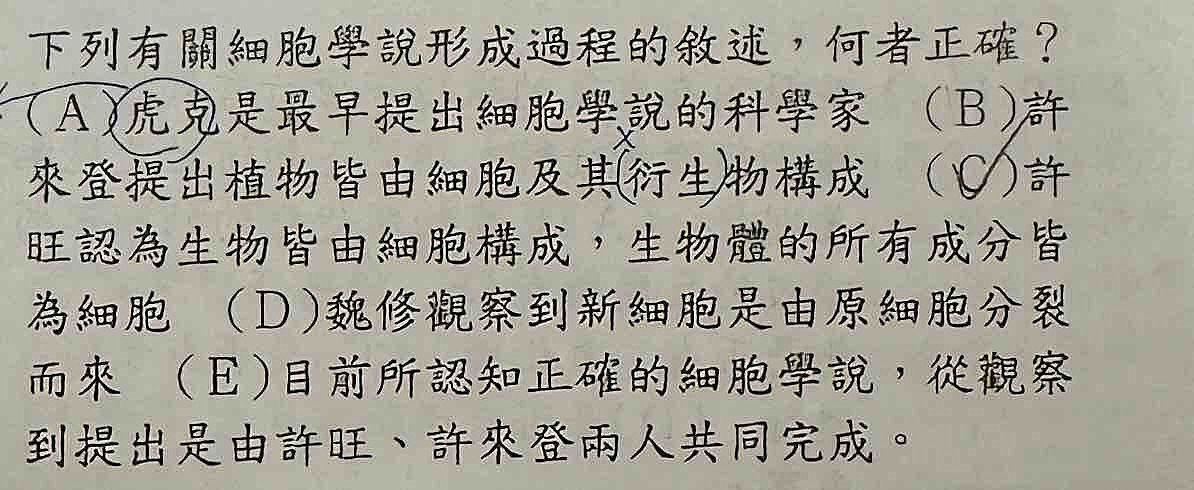 下列有關細胞學說形成過程的敘述，何者正確？
（A）虎克是最早提出細胞學說的科學家　（B）許
來登提出植物皆由細胞及其(衍生)物構成　（C）許
旺認為生物皆由細胞構成，生物體的所有成分皆
為細胞　（D）魏修觀察到新細胞是由原細胞分裂
而來　（E）目前所認知正確的細胞學說，從觀察
到提出是由許旺、許來登兩人共同完成。